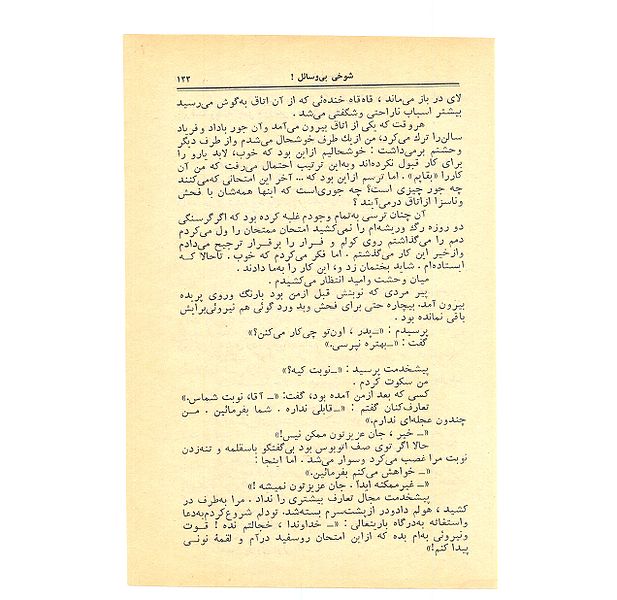 شوخی بی‌وسائل !
۱۲۳
لای در باز می‌ماند ، قاه‌قاه خنده‌ئی که از آن اتاق به‌گوش می‌رسید
بیشتر اسباب ناراحتی وشگفتی می‌شد .
هروقت که یکی از اتاق بیرون می‌آمد وآن جور باداد و فریاد
سالن‌را ترك می‌کرد، من ازیك طرف خوشحال می‌شدم واز طرف دیگر
وحشتم برمی‌داشت : خوشحالیم ازاین بود که خوب، لابد یارو را
برای کار قبول نکرده‌اند وبه‌این ترتیب احتمال می‌رفت که من آن
کاررا «بقاپم» . اما ترسم ازاین بود که ... آخر این امتحانی که‌می‌کنند
چه جور چیزی است؟ چه جوری‌است که اینها همه‌شان با فحش
وناسزا ازاتاق درمی‌آیند ؟
آن چنان ترسی به‌تمام وجودم غلبه کرده بود که اگرگرسنگی
دو روزه رگ وریشه‌ام را نمی‌کشید امتحان ممتحان را ول می‌کردم
دمم را می‌گذاشتم روی کولم و فرار را برقرار ترجیح می‌دادم
وازخیر این کار می‌گذشتم . اما فکر می‌کردم که خوب . تاحالا کـه
ایستاده‌ام . شاید بختمان زد و، این کار را به‌ما دادند .
میان وحشت وامید انتظار می‌کشیدم .
پیر مردی که نوبتش قبل ازمن بود بارنگ وروی پریده
بیرون آمد. بیچاره حتی برای فحش وبد ورد گوئی هم نیروئی‌برایش
باقی نمانده بود .
پرسیدم : «ــ پدر ، اون‌تو چی‌کار می‌کنن؟»
گفت : «ــ بهتره نپرسی.»
پیشخدمت پرسید : «ــ نوبت کیه؟»
من سکوت کردم .
کسی که بعد ازمن آمده بود، گفت: «ــ آقا، نوبت شماس.»
تعارف‌کنان گفتم : «ــ قابلی نداره . شما بفرمائین . مـن
چندون عجله‌ای ندارم.»
«ــ خیر ، جان عزیزتون ممکن نیس!»
حالا اگر توی صف اتوبوس بود بی‌گفتگو باسقلمه و تنه‌زدن
نوبت مرا غصب می‌کرد وسوار می‌شد . اما اینجا :
«ــ خواهش می‌کنم بفرمائین.»
«ــ غیرممکنه ابدا . جان عزیزتون نمیشه !»
پیشخدمت مجال تعارف بیشتری را نداد . مرا به‌طرف در
کشید ، هولم دادودر ازپشت‌سرم بسته‌شد. تودلم شروع‌کردم‌به‌دعا
واستغاثه به‌درگاه باریتعالی : «ــ خداوندا ، خجالتم نده ! قـوت
ونیروئی به‌ام بده که ازاین امتحان روسفید درآم و لقمهٔ نونـی
پیدا کنم!»